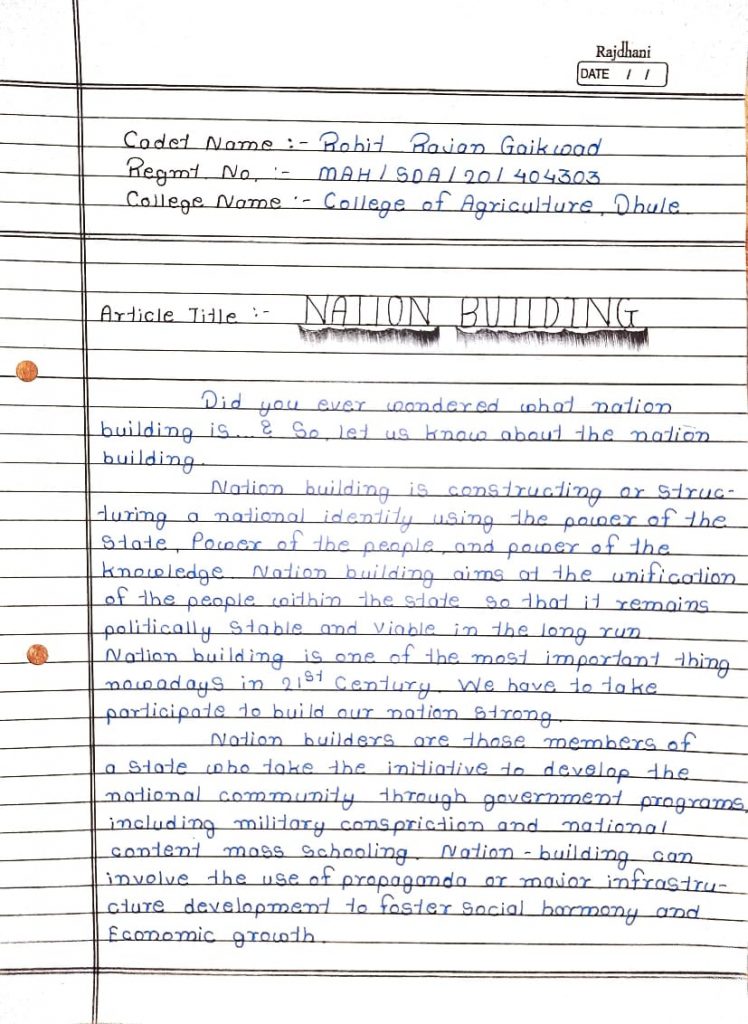 Rajdhani
DATE / /
Cadet Name :- Rohit Rajan Gaikwad
Regmt. No. :- MAH / SDA / 20 / 404303
College Name :- College of Agriculture, Dhule
Article Title :- NATION BUILDING
Did you ever wondered what nation
building is...? So, let us know about the nation
building.
Nation building is constructing or struc-
turing a national identity using the power of the
state, Power of the people, and power of the
knowledge. Nation building aims at the unification
of the people within the state so that it remains
politically stable and viable in the long run.
Nation building is one of the most important thing
nowadays in 21st Century. We have to take
participate to build our nation strong.
Nation builders are those members of
a state who take the initiative to develop the
national community through government programs,
including military conspriction and national
content mass schooling. Nation-building can
involve the use of propaganda or major infrastru-
cture development to foster social harmony and
Economic growth.